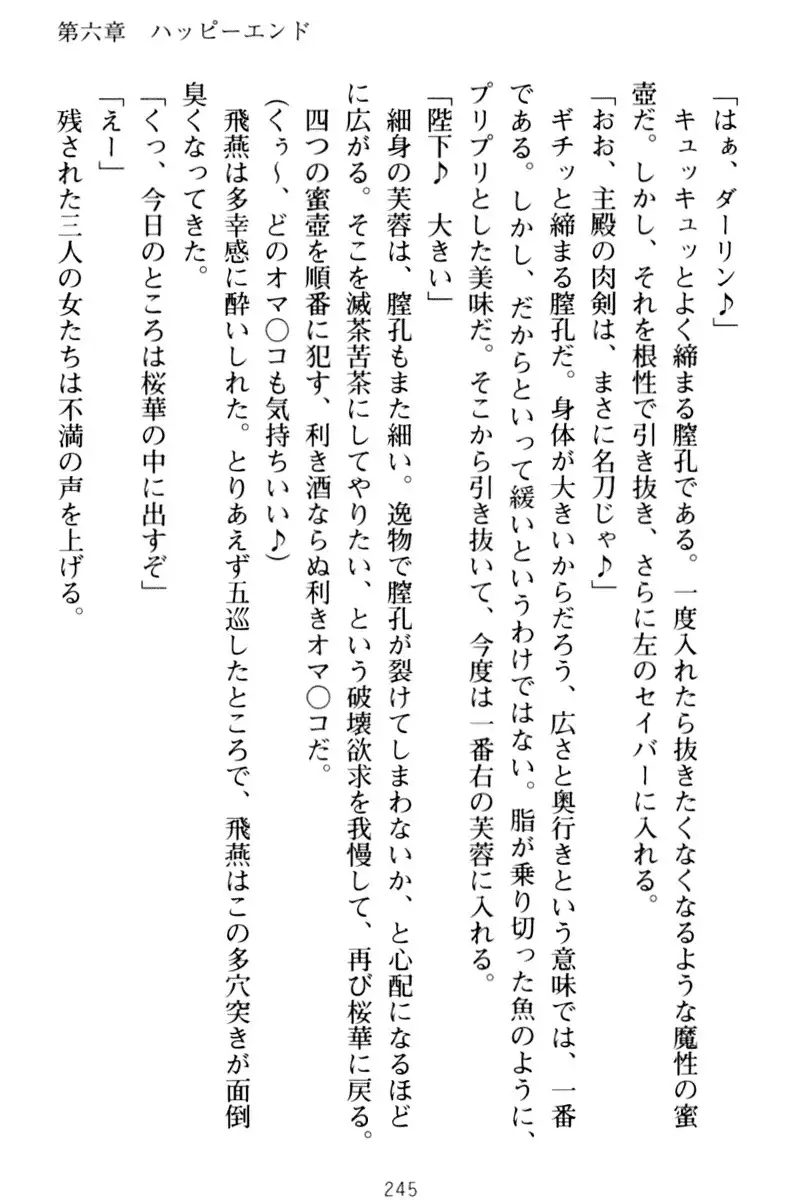 第六章　ハッピーエンド
「はぁ、ダーリン♪」
　キュッキュッとよく締まる膣孔である。一度入れたら抜きたくなくなるような魔性の蜜
壺だ。しかし、それを根性で引き抜き、さらに左のセイバーに入れる。
「おお、主殿の肉剣は、まさに名刀じゃ♪」
　ギチッと締まる膣孔だ。身体が大きいからだろう、広さと奥行きという意味では、一番
である。しかし、だからといって緩いというわけではない。脂が乗り切った魚のように、
プリプリとした美味だ。そこから引き抜いて、今度は一番右の芙蓉に入れる。
「陛下♪　大きい」
　細身の芙蓉は、膣孔もまた細い。逸物で膣孔が裂けてしまわないか、と心配になるほど
に広がる。そこを滅茶苦茶にしてやりたい、という破壊欲求を我慢して、再び桜華に戻る。
　四つの蜜壺を順番に犯す、利き酒ならぬ利きオマ〇コだ。
（くぅ～、どのオマ〇コも気持ちいい♪）
　飛燕は多幸感に酔いしれた。とりあえず五巡したところで、飛燕はこの多穴突きが面倒
臭くなってきた。
「くっ、今日のところは桜華の中に出すぞ」
「えー」
　残された三人の女たちは不満の声を上げる。
245